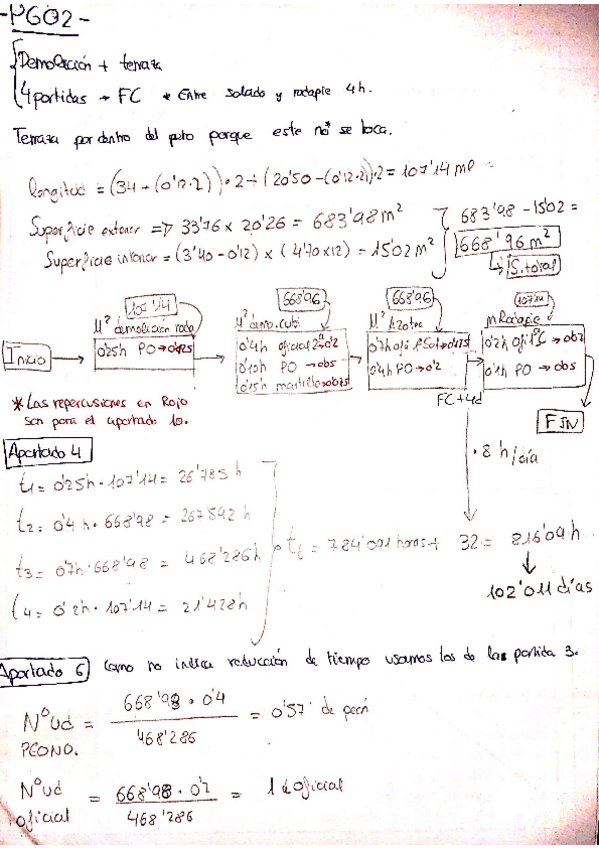 -PG02-
Demolición + terraza
4 partidas → FC * Entre solado y rodapie 4h.
Terraza por dentro del peto porque este no se toca.
Longitud = (34 - (0'12·2))·2 + (20'50 - (0'12·2))·2 = 107'14 ml
Superficie exterior => 33'76 x 20'26 = 683'98 m²
Superficie interior = (3'40 - 0'12) x (4'70 x 12) = 15'02 m²
683'98 - 15'02 =
668'96 m²
↳ S. total
107'14
668'96
668'96
107'14
Inicio
M² demolición roda
0'25h PO → 0'125
M² demo. cubi
0'4h oficial 2ª → 0'2
0'10h PO → 0'05
0'15h martillo → 0'075
M² Azotea
0'7h ofi 1ª
0'4h PO → 0'2
m Rodapie
0'2h ofi 1ª
0'1h PO → 0'05
FC + 4d
FIN
* Las repercusiones en Rojo
son para el apartado 10.
Apartado 4
t1 = 0'25h · 107'14 = 26'785 h
t2 = 0'4 h · 668'98 = 267'592 h
t3 = 0'7h · 668'98 = 468'286h
t4 = 0'2h · 107'14 = 21'428h
· 8 h/día
t t = 784'091 horas + 32 = 816'09 h
102'011 días
Apartado 6
Como no indica reducción de tiempo usamos los de la partida 3.
Nº ud PEONO. = 668'98 · 0'4 / 468'286 = 0'57 de peón
Nº ud oficial = 668'98 · 0'7 / 468'286 = 1 oficial